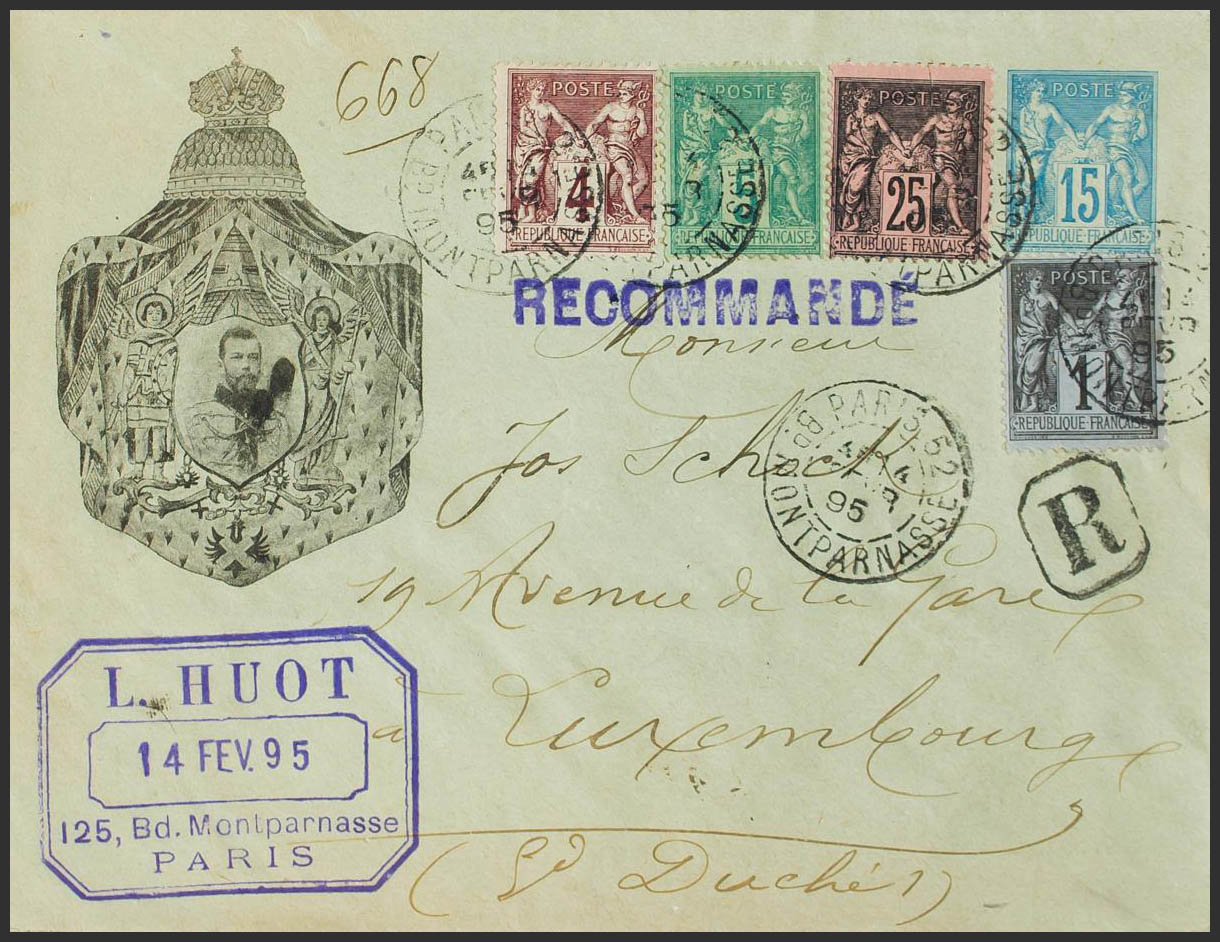 668
POSTE
4
REPUBLIQUE FRANCAISE
POSTE
5
REPUBLIQUE FRANCAISE
POSTE
25
REPUBLIQUE FRANCAISE
POSTE
15
REPUBLIQUE FRANCAISE
POSTE
1
REPUBLIQUE FRANCAISE
95
MONTPARNASSE
95
RECOMMANDÉ
Monsieur
Jos Schock
PARIS 52
95
Bd MONTPARNASSE
R
19 Avenue de la Gare
à Luxembourg
(Gd Duché)
L. HUOT
14 FEV. 95
125, Bd. Montparnasse
PARIS